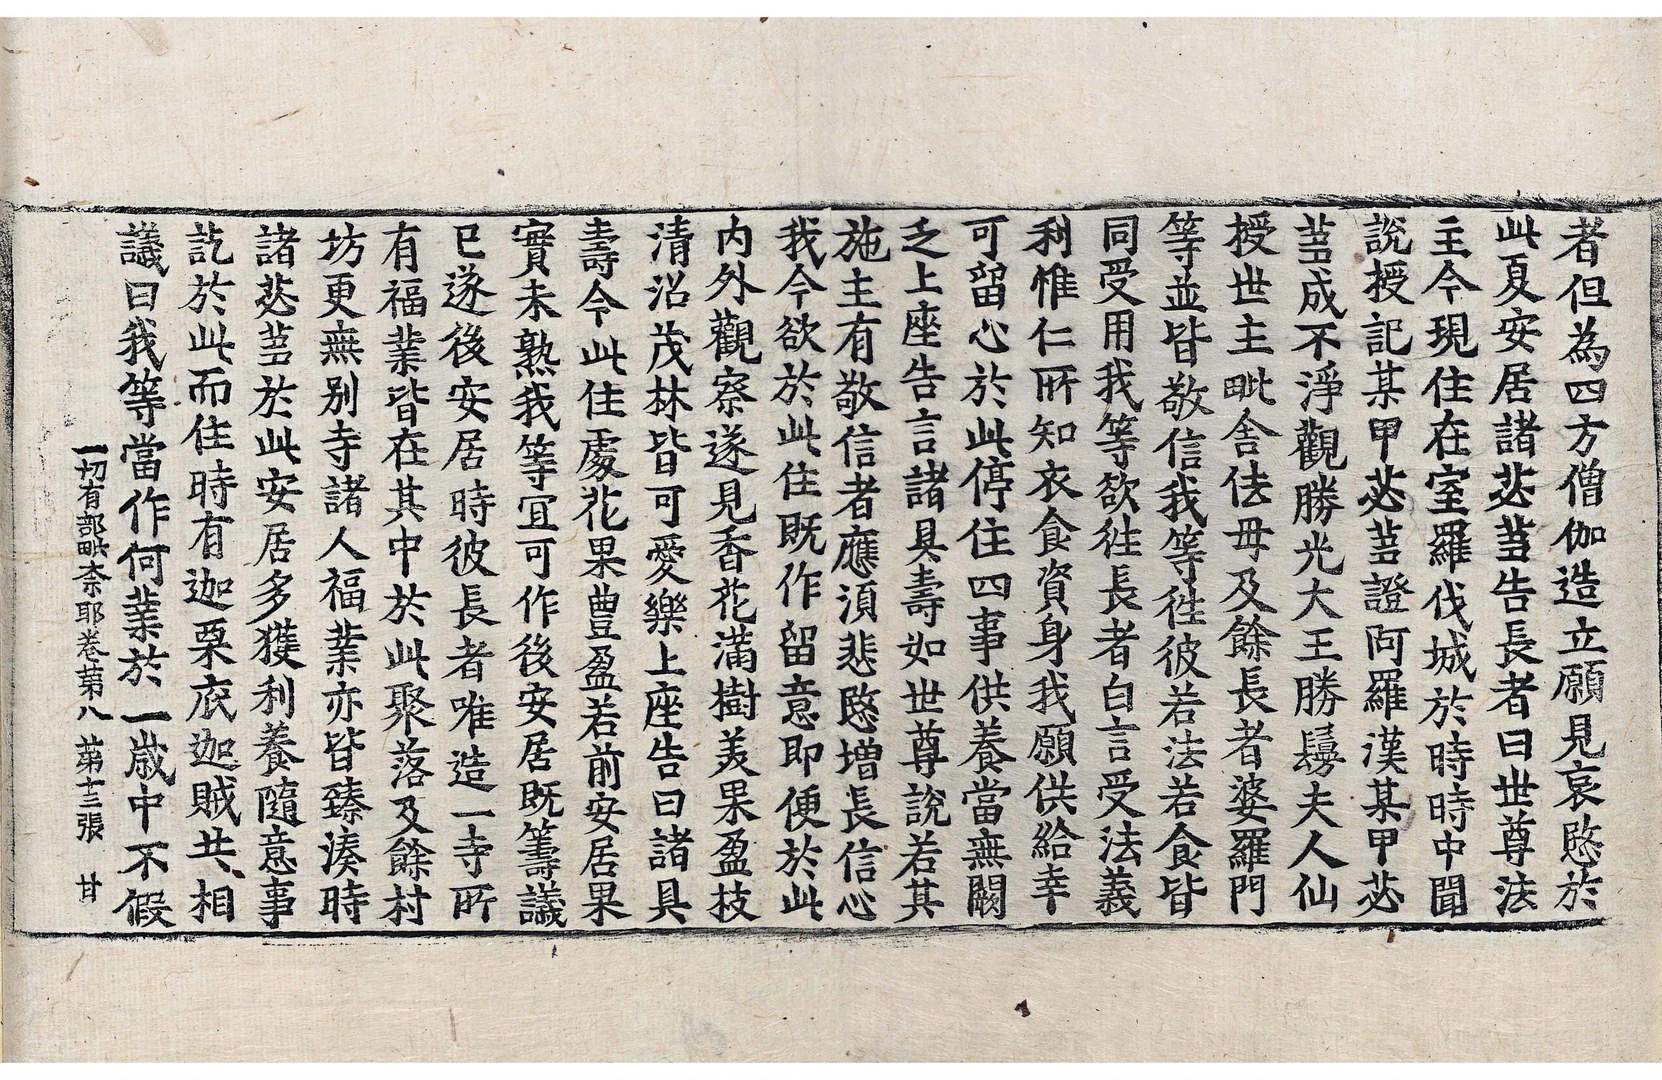 者但為四方僧伽造立願見哀愍於
此夏安居諸苾芻告長者曰世尊法
主今現住在室羅伐城於時時中聞
說授記某甲苾芻證阿羅漢某甲苾
芻成不淨觀勝光大王勝鬘夫人仙
授世主毗舍佉毋及餘長者婆羅門
等並皆敬信我等徃彼若法若食皆
同受用我等欲徃長者白言受法義
利惟仁所知衣食資身我願供給幸
可留心於此停住四事供養當無闕
乏上座告言諸具壽如世尊說若其
施主有敬信者應湏悲愍增長信心
我今欲於此住既作留意即便於此
內外觀察遂見香花滿樹美果盈枝
清沼茂林皆可愛樂上座告曰諸具
壽今此住處花果豊盈若前安居果
實未熟我等宜可作後安居既籌議
已遂後安居時彼長者唯造一寺所
有福業皆在其中於此聚落及餘村
坊更無別寺諸人福業亦皆臻湊時
諸苾芻於此安居多獲利養隨意事
訖於此而住時有迦栗底迦賊共相
議曰我等當作何業於一歲中不假
一切有部毗奈耶卷第八 第十三張 甘